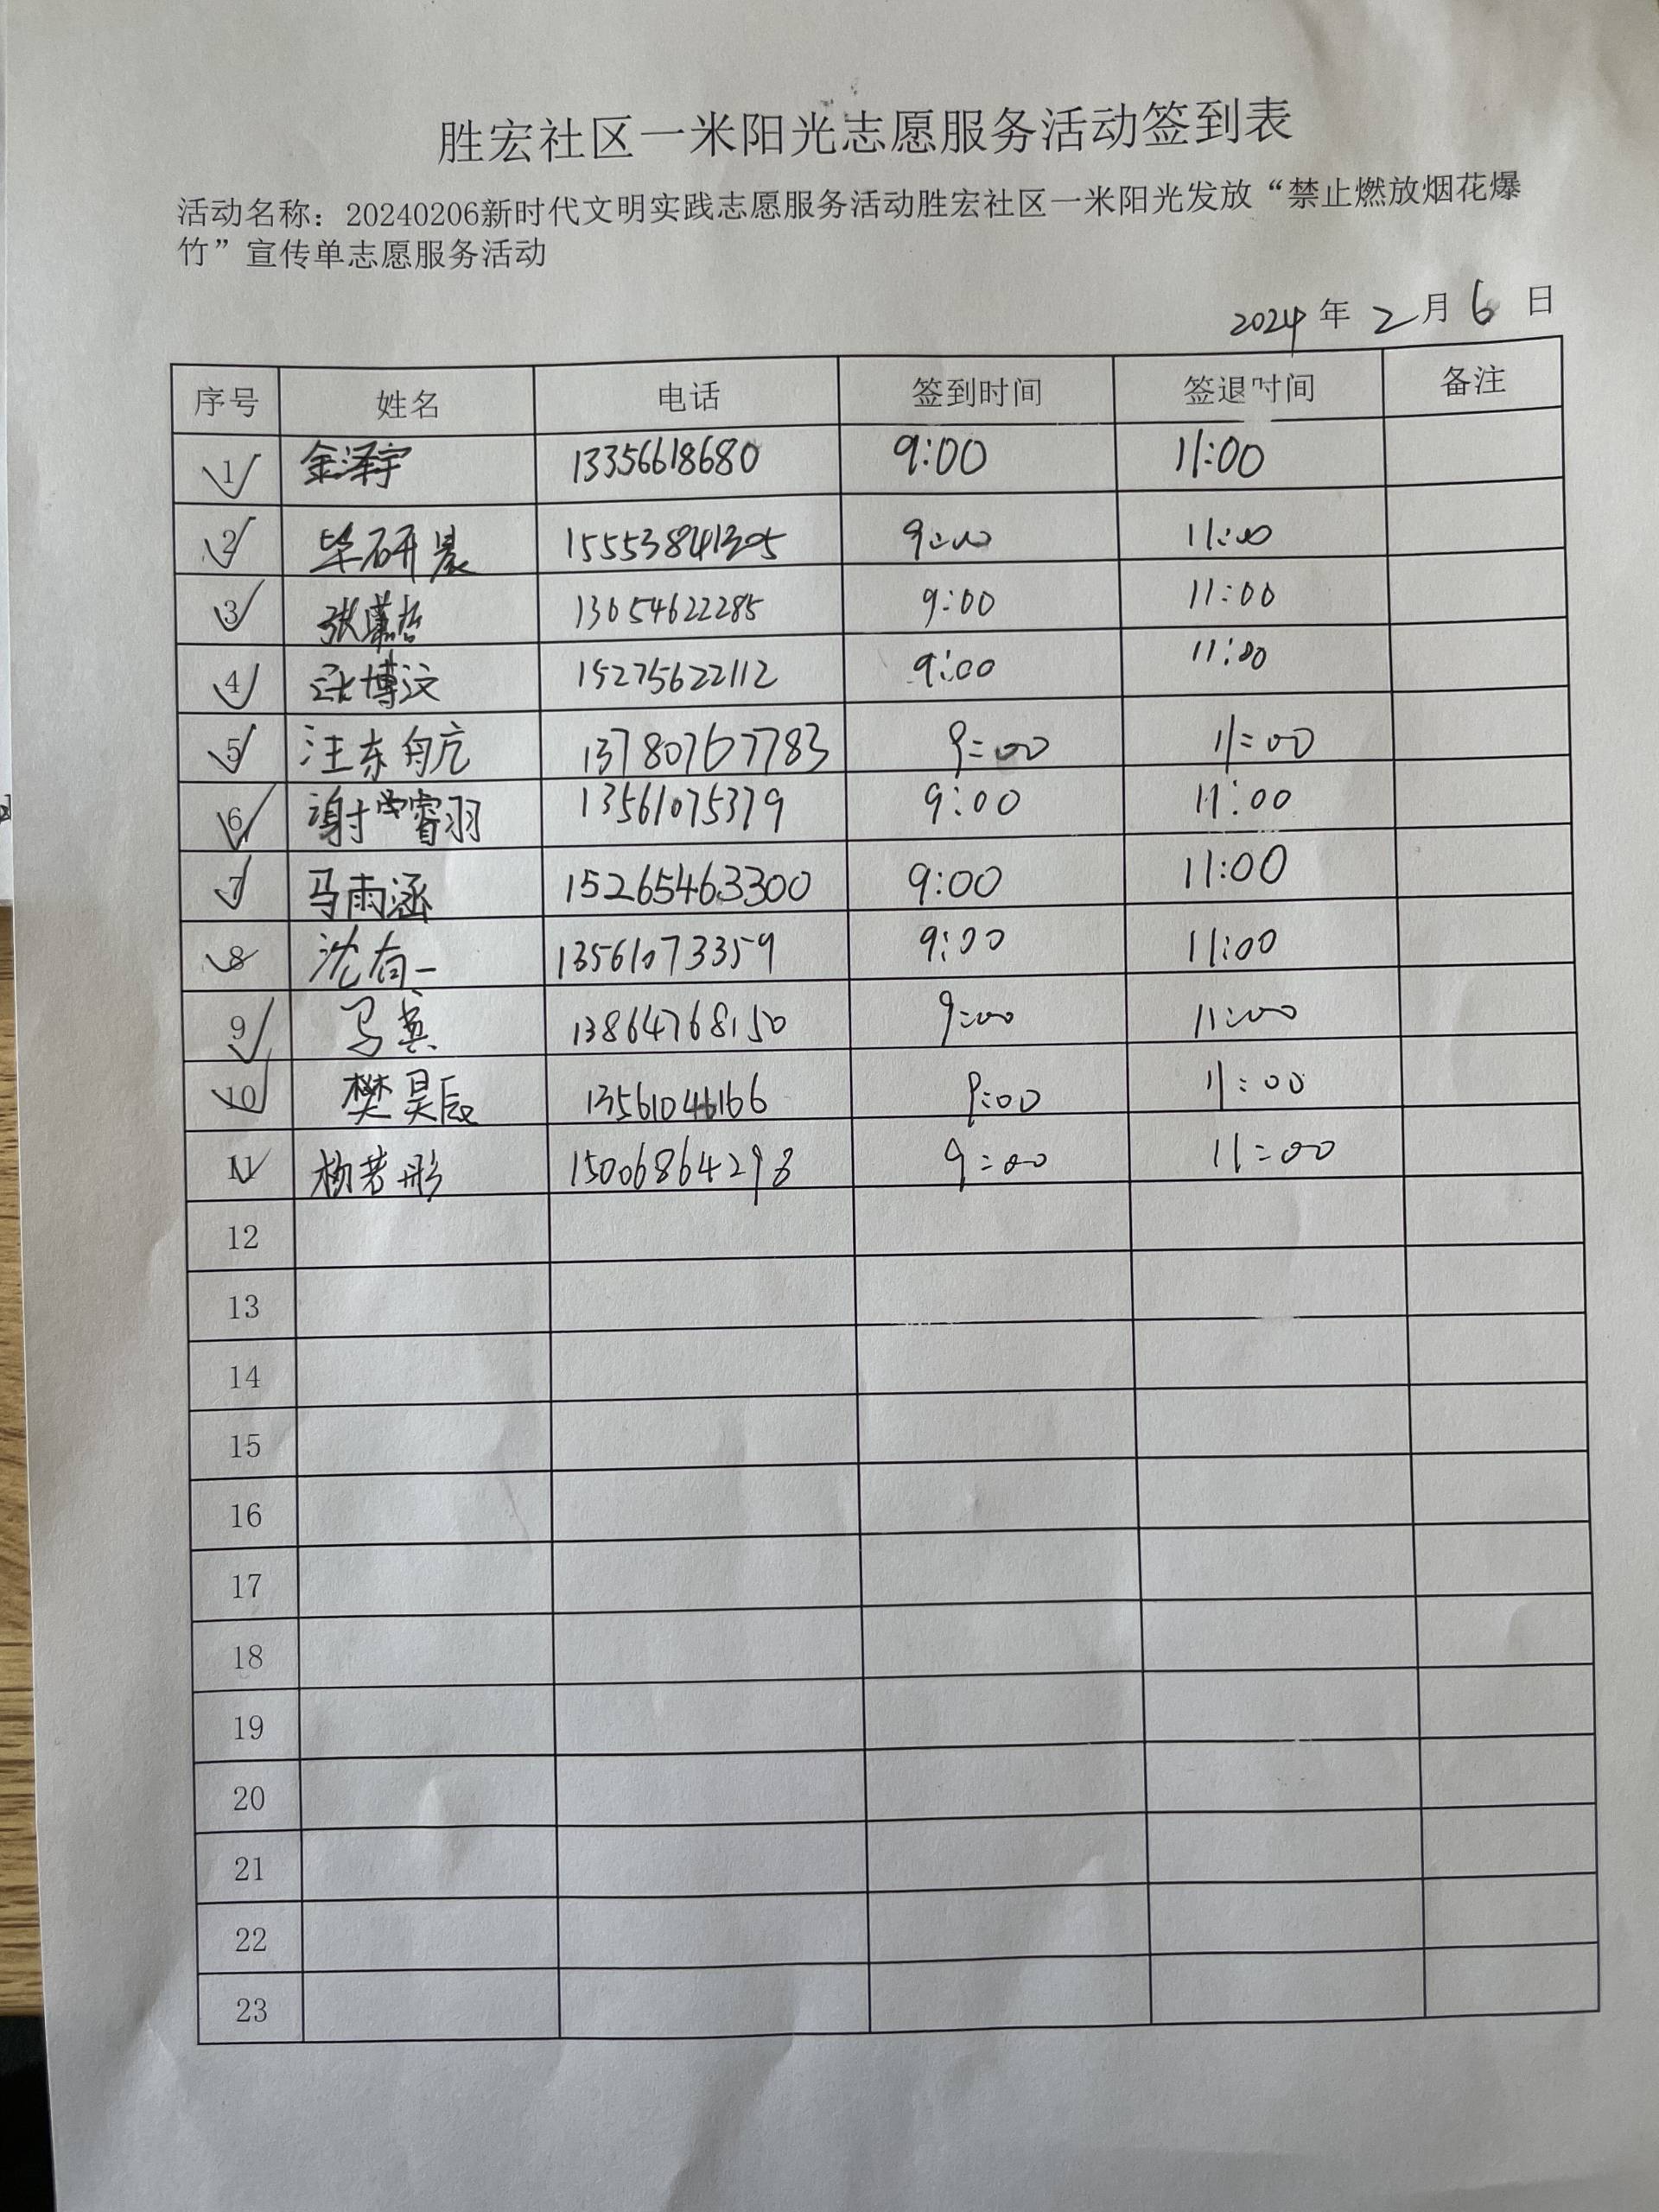 胜宏社区一米阳光志愿服务活动签到表
活动名称：20240206新时代文明实践志愿服务活动胜宏社区一米阳光发放“禁止燃放烟花爆
竹”宣传单志愿服务活动
2024 年 2 月 6 日
序号 姓名 电话 签到时间 签退时间 备注
1 金泽宇 13356618680 9:00 11:00
2 毕研晨 15553841305 9:00 11:00
3 张 13054622285 9:00 11:00
4 张博汶 15275622112 9:00 11:00
5 汪东航 13780767783 9:00 11:00
6 谢睿羽 13561075379 9:00 11:00
7 马雨涵 15265463300 9:00 11:00
8 沈有一 13561073359 9:00 11:00
9 马英 13864768150 9:00 11:00
10 樊昊辰 13561046166 9:00 11:00
11 杨若彤 15006864298 9:00 11:00
12
13
14
15
16
17
18
19
20
21
22
23